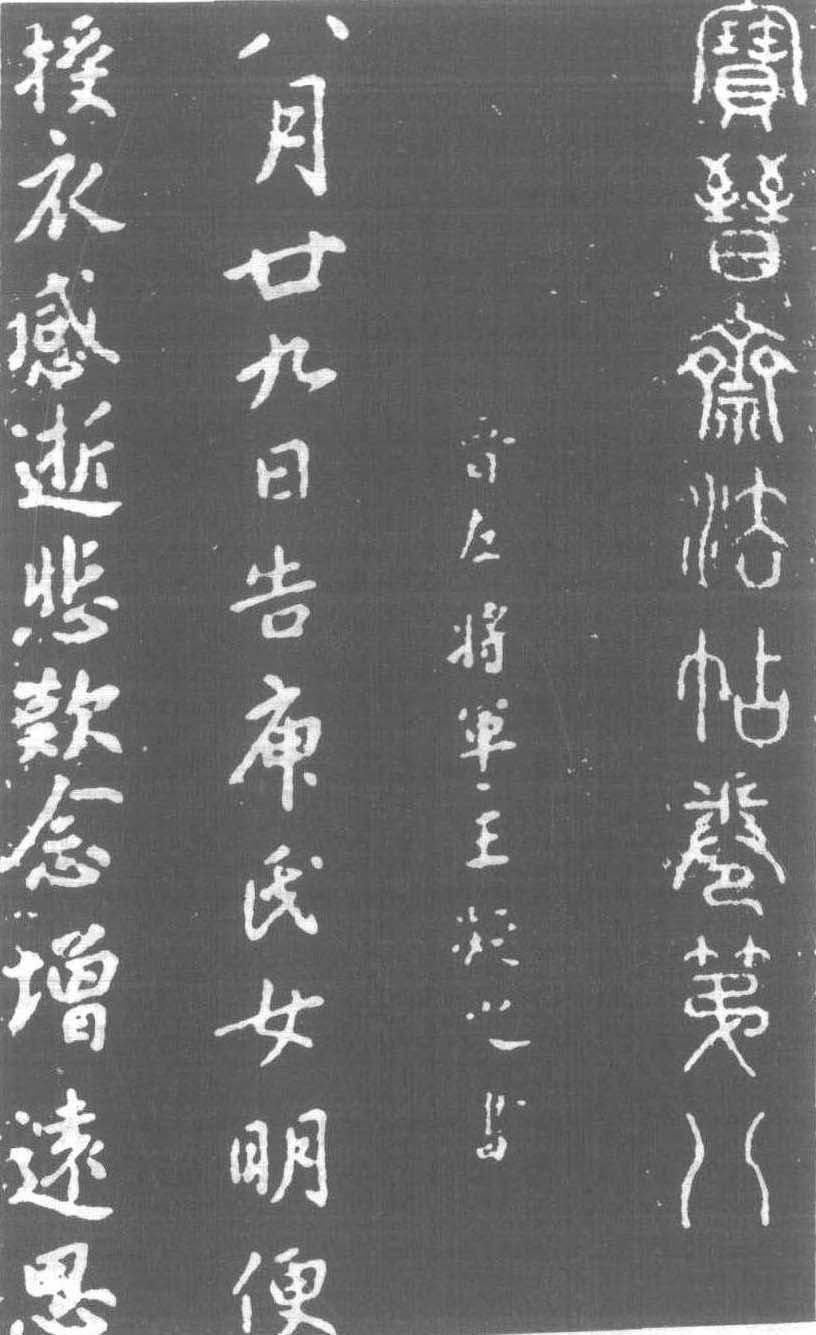 寶晉齋法帖卷第八
晉左將軍王凝之書
八月廿九日告庾氏女明便
授衣感逝悲歎念增遠思